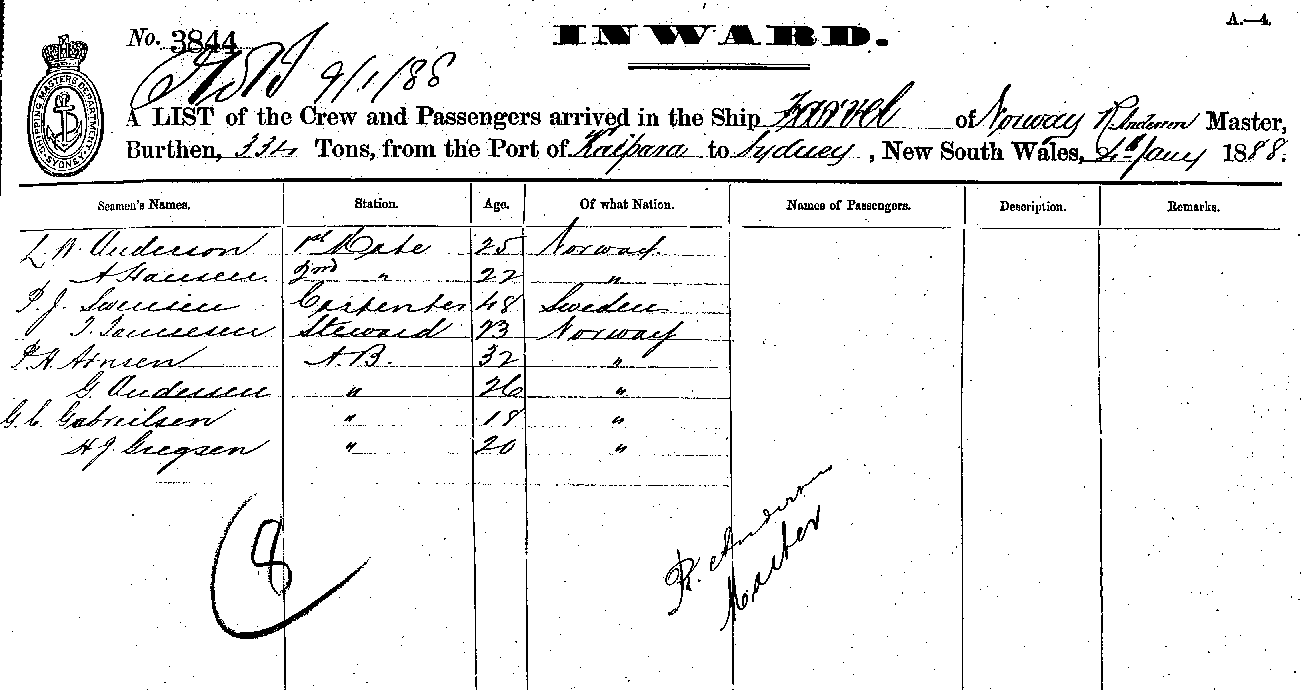 A.—4.
No. 3844
INWARD.
9/1/88
SHIPPING MASTERS DEPARTMENT SYDNEY
A LIST of the Crew and Passengers arrived in the Ship Farvel of Norway R. Anderson Master,
Burthen, 334 Tons, from the Port of Kaipara to Sydney, New South Wales, Jany 1888.
Seamen's Names. Station. Age. Of what Nation. Names of Passengers. Description. Remarks.
L. W. Anderson 1st Mate 25 Norway
A Hansen 2nd " 22 "
P. J. Swensen Carpenter 48 Sweden
Steward 23 Norway
P. A. Arnsen A.B. 32 "
G. Andersen " 26 "
G. C. Gabrielsen " 18 "
H J. Gregsen " 20 "
8
R. Anderson
Master